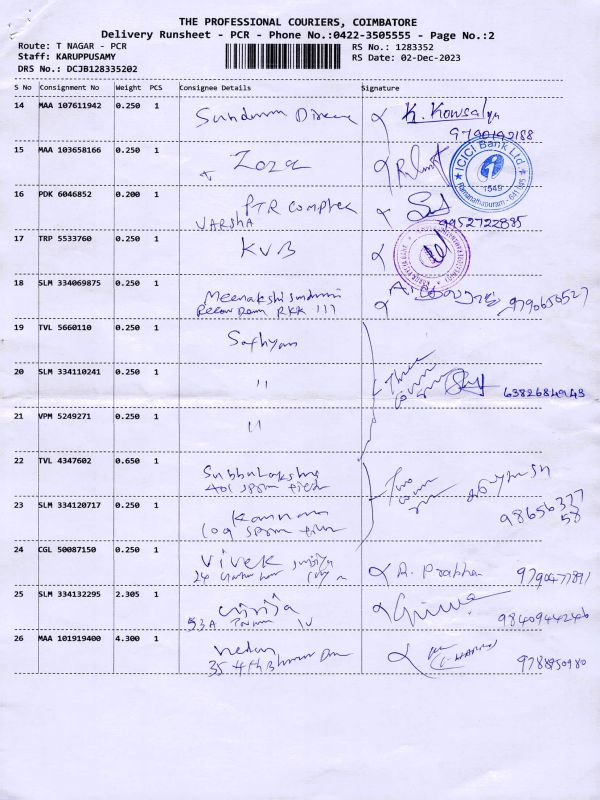 THE PROFESSIONAL COURIERS, COIMBATORE
Delivery Runsheet - PCR - Phone No.:0422-3505555 - Page No.:2
Route: T NAGAR - PCR RS No.: 1283352
Staff: KARUPPUSAMY RS Date: 02-Dec-2023
DRS No.: DCJB128335202
S No Consignment No Weight PCS Consignee Details Signature
14 MAA 107611942 0.250 1 K. Kowsalya
9790192188
15 MAA 103658166 0.250 1 Zoza
ICICI Bank Ltd.
1549
Ramanathapuram - 641 045
16 PDK 6046852 0.200 1 PTR Complex
VARSHA 9952722885
17 TRP 5533760 0.250 1 KVB
18 SLM 334069875 0.250 1 Meenakshi Sundaram
RKK 111 9790650527
19 TVL 5660110 0.250 1 Sathyan
20 SLM 334110241 0.250 1 " Three
6382684943
21 VPM 5249271 0.250 1 "
22 TVL 4347602 0.650 1 Subbulakshmi
401 Two
23 SLM 334120717 0.250 1 Kannan 98656377
109 58
24 CGL 50087150 0.250 1 Vivek
24 A. Prabha 9790477891
25 SLM 334132295 2.305 1 Girija
53A IV 9840944246
26 MAA 101919400 4.300 1
35 4th 9788950980